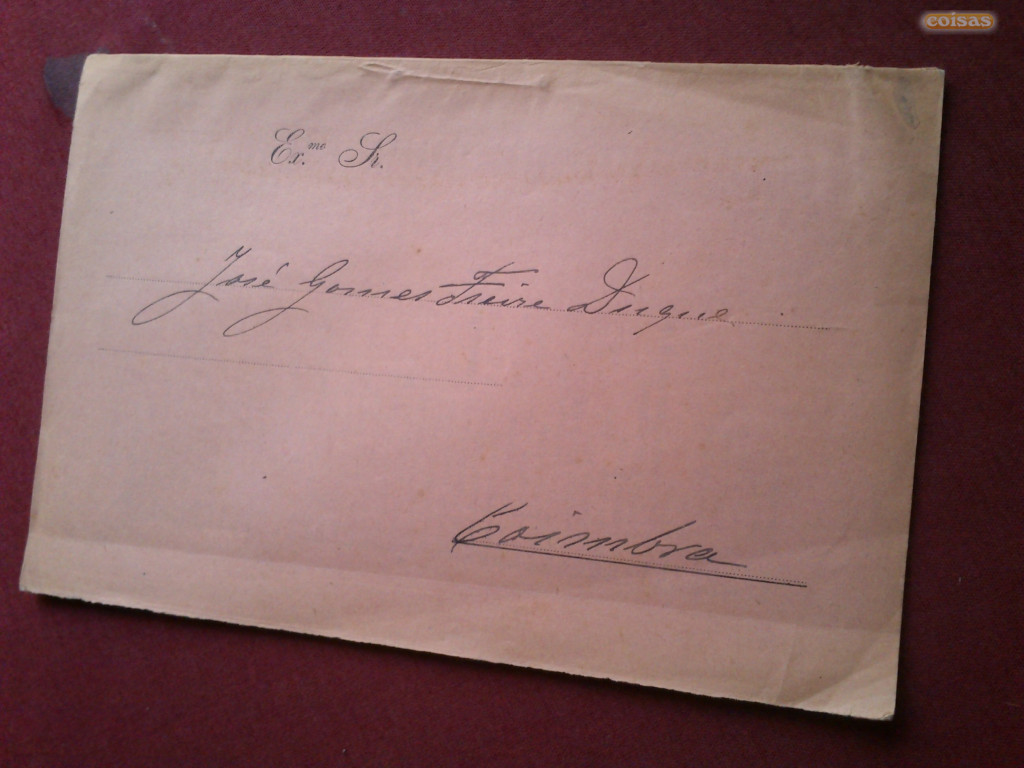 coisas
Ex.mo Sr.
José Gomes Freire Duque
Coimbra